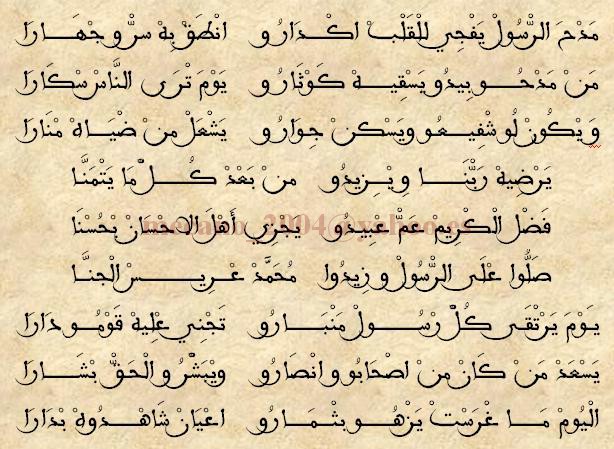 مَدْحَ الرَّسُولْ يَفْجِي لِلْقَلْبْ اكْدَارُو انْطَقْ بِهْ سرُّ وجْهَارَا
مَنْ مَدْحُو بِيدُو يَسْقِيهْ كَوْثَارُو يَوْمَ تْرَى النَّاسْ سْكَارَا
وَيْكُونْ لُو شْفِيعُو ويَسْكنْ جِوَارُو يَشْعَلْ منْ ضْيَاهْ مْنَارَا
يَرْضِيهْ رَبّْنَا ويْزِيدُو منْ بَعْدْ كُلّْ مَا يَتْمَنَّا
فَضْل الْكْرِيمْ عَمّْ عبِيدُو يجْزِي أَهْلَ الاحْسَانْ بْحُسْنَا
صَلُّوا عْلَى الرَّسُولْ وزِيدُوا مُحَمَّدْ عْرِيسْ الْجنَّا
يَوْمَ يَرْتقَى كُلّْ رْسُولْ مَنْبَارُو تَجْنِي عْلِيهْ قَوْمُو دَارَا
يَسْعَدْ مَنْ كَانْ منْ اصْحَابُو وانْصَارُو ويْبَشّْرُو الْحَقّْ بْشَارَا
الْيُومْ مَا غْرَسْتْ يَزْهُو بثْمَارُو اعْيَانْ شَاهْدُوهْ بْدَارَا